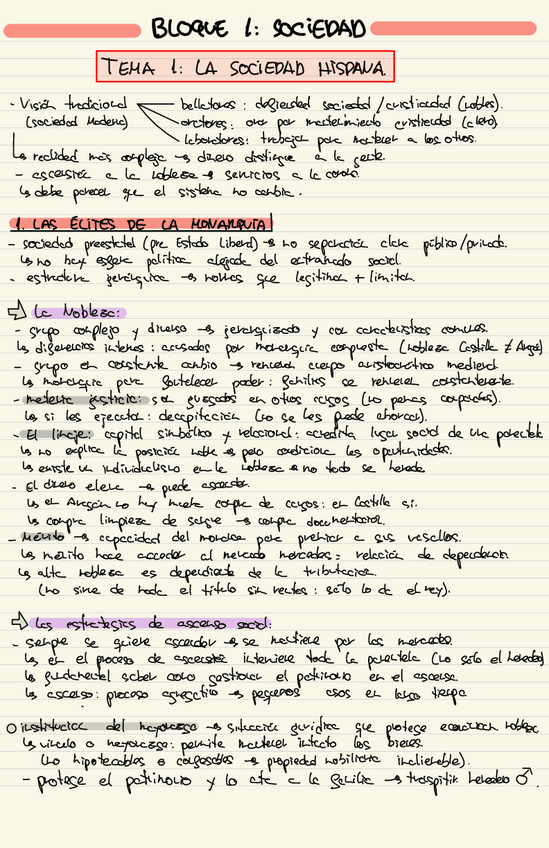 BLOQUE 1: SOCIEDAD
TEMA 1: LA SOCIEDAD HISPANA.
- Visión tradicional → bellatores: defienden sociedad / cristiandad (nobles).
(sociedad Moderna) → oratores: orar por mantenimiento cristiandad (clero).
laboratores: trabajar para mantener a los otros.
↳ realidad más compleja → dinero distingue a la gente.
- ascensión a la nobleza → servicios a la corona.
↳ debe parecer que el sistema no cambia.
1. LAS ÉLITES DE LA MONARQUÍA
- sociedad preestatal (pre Estado Liberal) → no separación clara público/privado.
↳ no hay esfera política alejada del entramado social.
- estructura jerárquica → normas que legitiman + limitan.
⇒ La Nobleza:
- grupo complejo y diverso → jerarquizado y con características comunes.
↳ diferencias internas: acusadas por monarquía compuesta (nobleza Castilla ≠ Aragón)
- grupo en constante cambio → renueva cuerpo aristocrático medieval.
↳ monarquía para fortalecer poder: familias se renuevan constantemente.
- materia justicia: son juzgados en otros casos (no penas corporales).
↳ si les ejecutan: decapitación (no se les puede ahorcar).
- El linaje: capital simbólico y relacional: acredita lugar social de una parentela
↳ no explica la posición noble → pero condiciona las oportunidades.
↳ existe un individualismo en la nobleza → no todo se hereda
- El dinero eleva → puede ascender.
↳ en Aragón no hay mucha compra de cargos: en Castilla sí.
↳ compra limpieza de sangre → compra documentación.
- Mérito → capacidad del monarca para premiar a sus vasallos.
↳ mérito hace acceder al mercado mercedes: relación de dependencia.
↳ alta nobleza es dependiente de la tributación.
(no sirve de nada el título sin rentas: solo lo da el rey).
⇒ Las estrategias de ascenso social:
- siempre se quiere ascender → se mantiene por las mercedes.
↳ en el proceso de ascenso interviene toda la parentela (no sólo el heredero)
↳ fundamental saber cómo gestionar el patrimonio en el ascenso.
↳ ascenso: proceso agregativo → pequeños pasos en largo tiempo
○ institución del mayorazgo → situación jurídica que protege economía nobleza
↳ vínculo o mayorazgo: permite mantener intacto los bienes.
(no hipotecables o comprables → propiedad nobiliaria inalienable).
- protege el patrimonio y lo ata a la familia → transmitir heredero ♂.